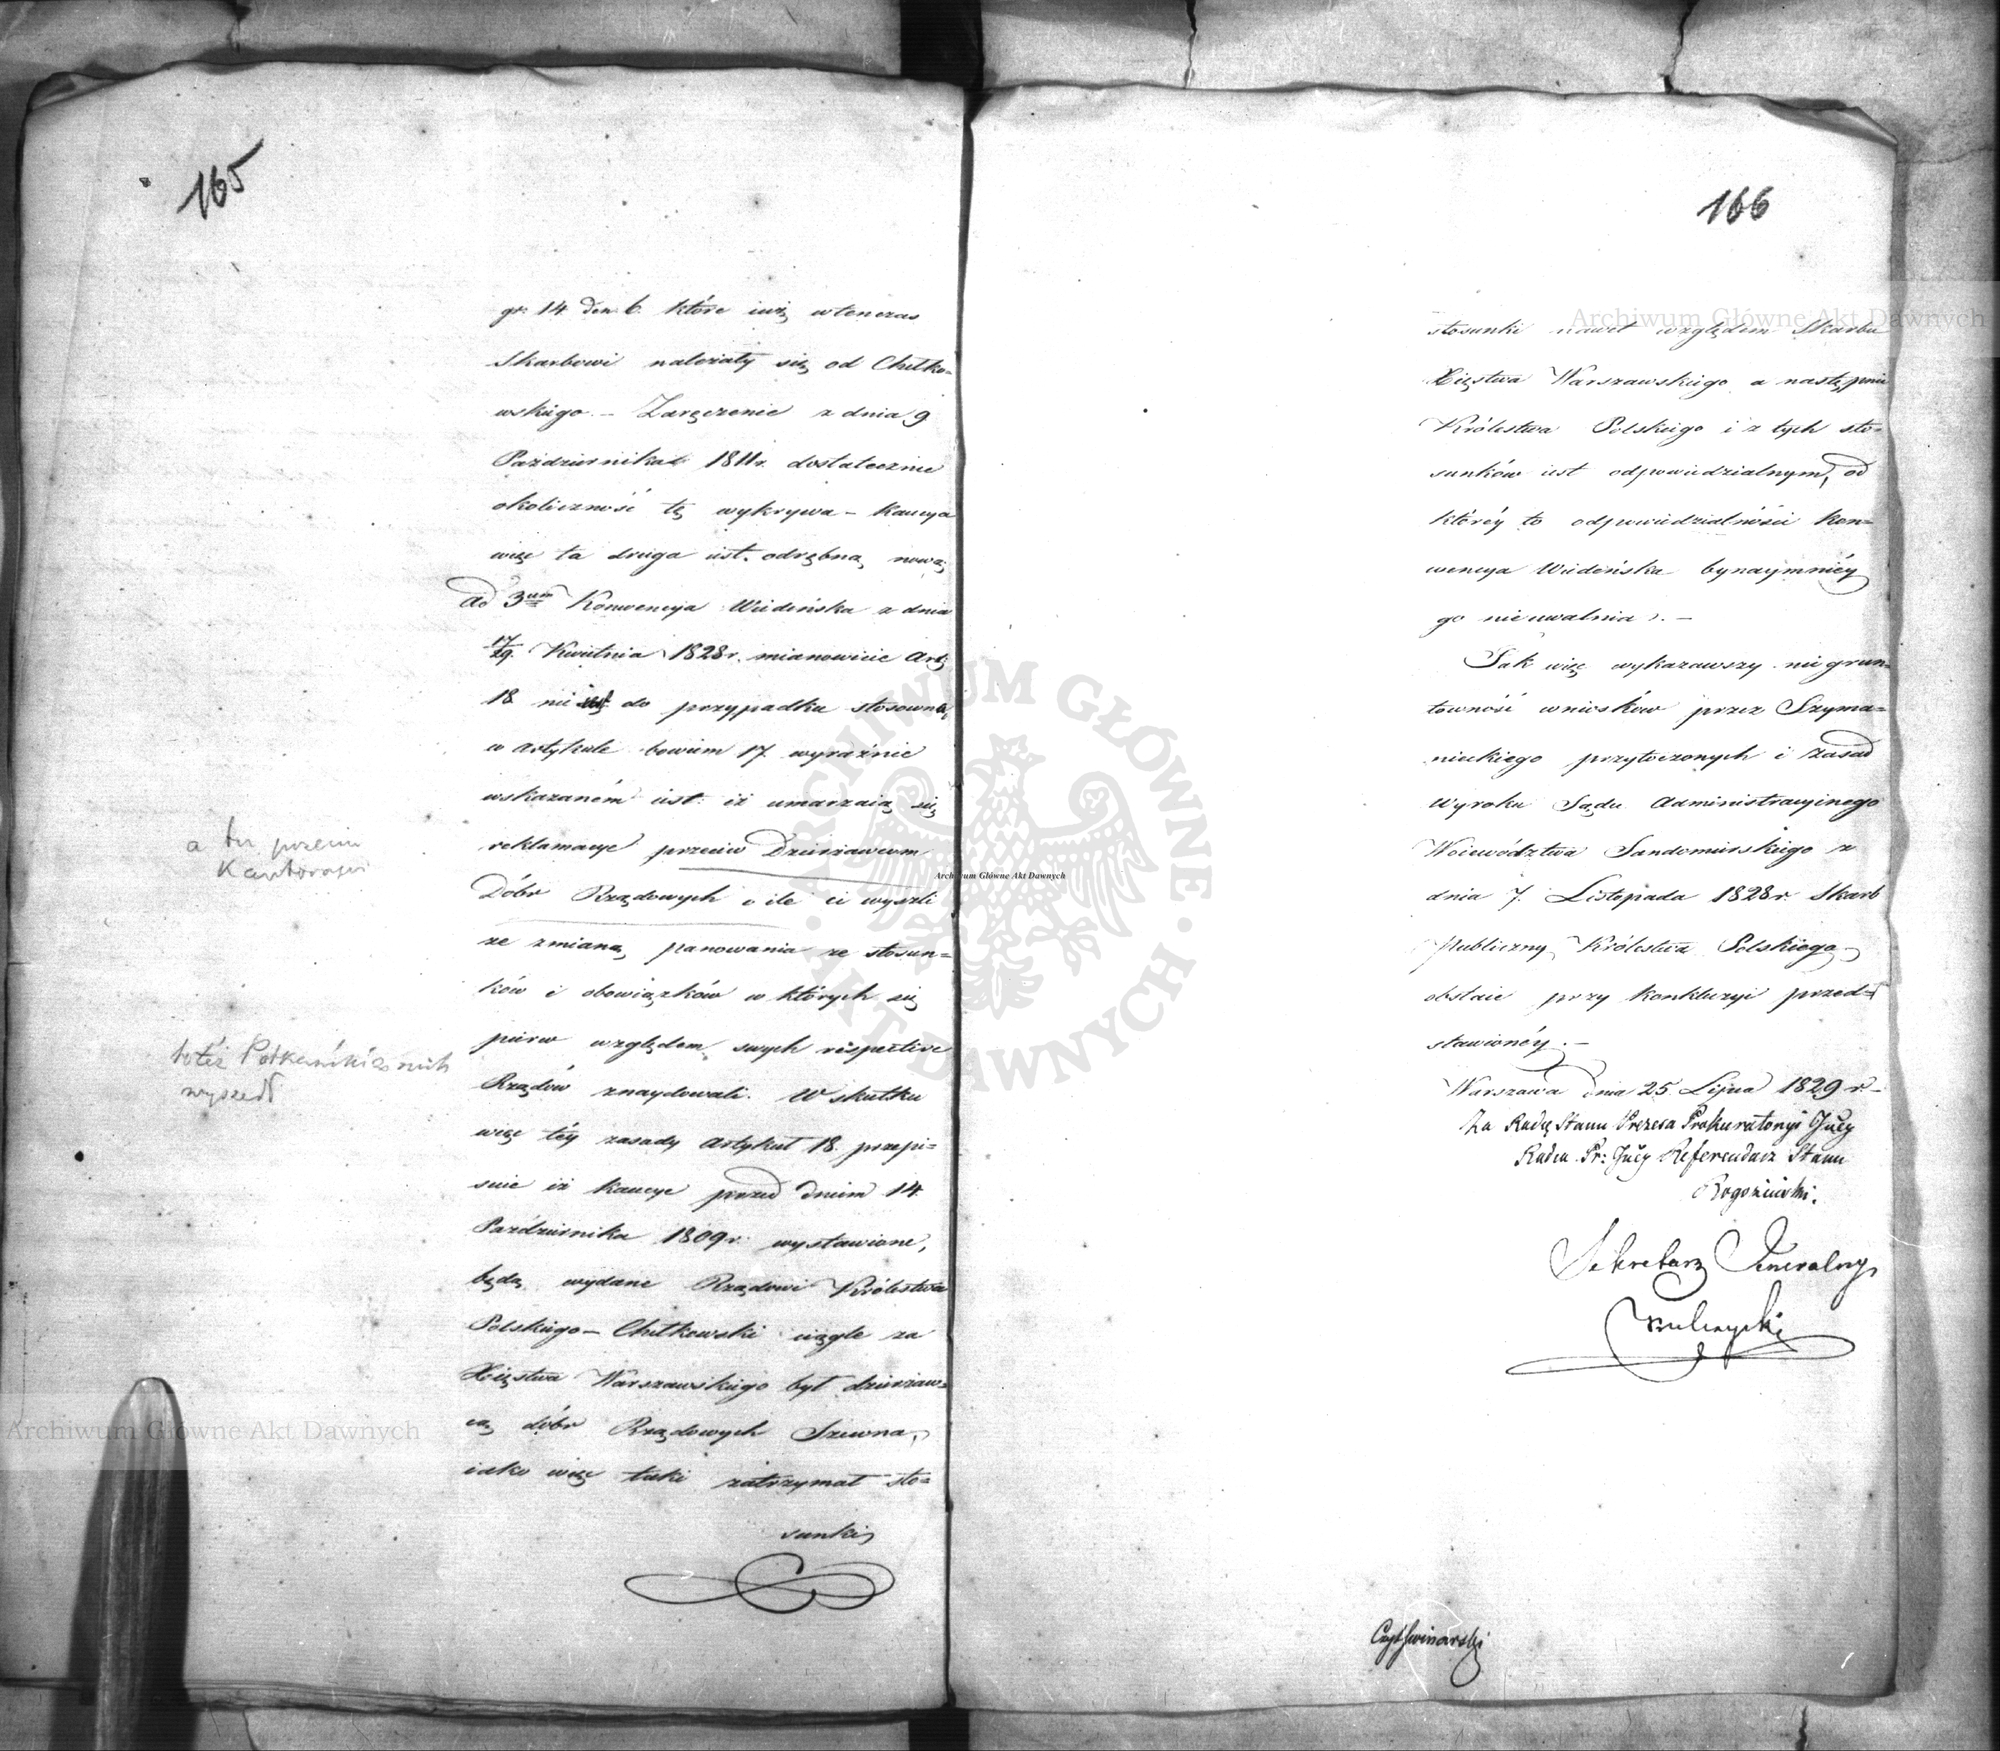 165
gr. 14. den. 6. które iuż wtenczas
Skarbowi należały się od Chełko-
wskiego. – Zaręczenie z dnia 9.
Października 1811r. dostatecznie
okoliczność tę wykrywa – kaucya
więc ta druga iest odrębną nową
Ad 3um Konwencya Wiedeńska z dnia
17/29. Kwietnia 1828r. mianowicie Art.
18 nie iest do przypadku stosowną,
w artykule bowiem 17. wyraźnie
wskazaném iest: iż umarzaią się
reklamacye przeciw Dzierżawcom
Dóbr Rządowych o ile ci wyszli
ze zmianą panowania ze stosun-
ków i obowiązków w których się
pierw względem swych respective
Rządów znaydowali. W skutku
więc téy zasady Artykuł 18. przepi-
suie iż kaucye przed dniem 14.
Października 1809r. wystawione,
będą wydane Rządowi Królestwa
Polskiego – Chełkowski ciągle za
Xięstwa Warszawskiego był dzierżaw-
cą dóbr Rządowych Szewna,
iako więc taki zatrzymał sto-
sunki
a tu przeciw
Kantorowi
toteż Potkański z nich
wyszedł
166
stosunki nawet względem Skarbu
Xięstwa Warszawskiego a następnie
Królestwa Polskiego i z tych sto-
sunków iest odpowiedzialnym, od
któréy to odpowiedzialności Kon-
wencya Wiedeńska bynaymniéy
go nie uwalnia. –
Tak więc wykazawszy nie grun-
towność wniosków przez Szyma-
nieckiego przytoczonych i zasad
Wyroku Sądu Administracyinego
Woiewództwa Sandomirskiego z
dnia 7. Listopada 1828r. Skarb
Publiczny Królestwa Polskiego
obstaie przy konkluzyi przed-
stawionéy. –
Warszawa dnia 25. Lipca 1829 r. –
Za Radcę Stanu Prezesa Prokuratoryi Jlney
Radca Pr: Jlney Referendarz Stanu
Rogoziński.
Sekretarz Generalny
Kulczycki
Archiwum Główne Akt Dawnych
Archiwum Główne Akt Dawnych
Archiwum Główne Akt Dawnych
ARCHIWUM GŁÓWNE
AKT DAWNYCH